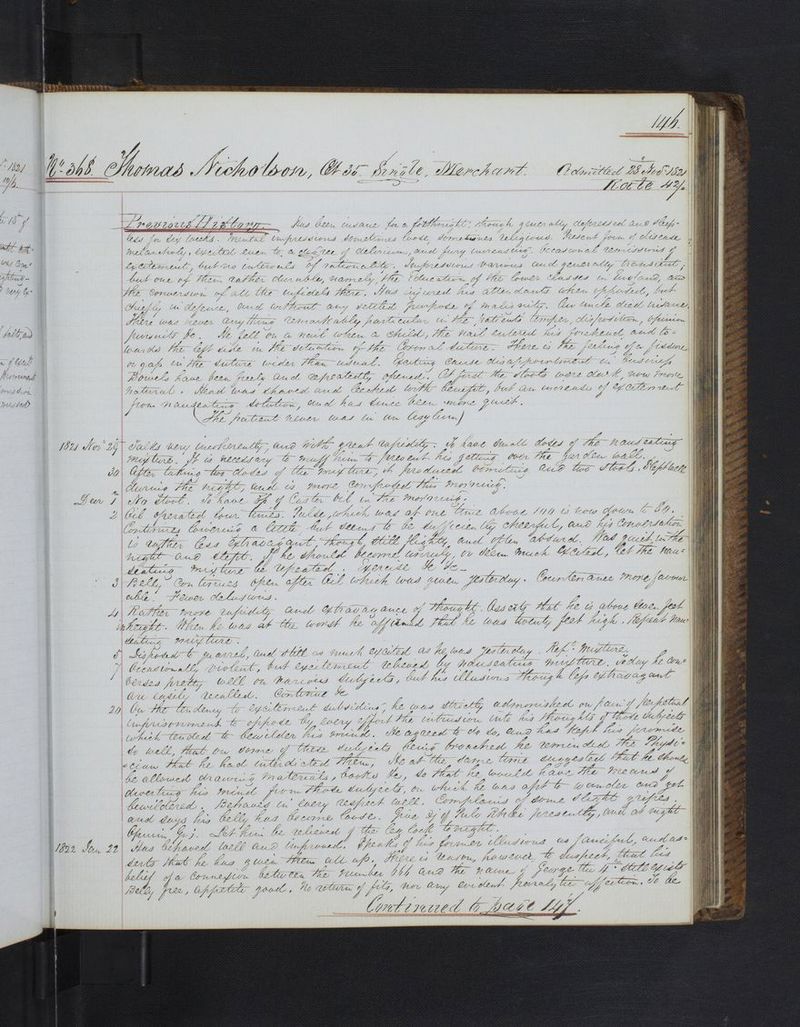 146.
No 368. Thomas Nicholson, Æt 35. Single. Merchant. Admitted 28 Nov 1821
Rate 42/
Previous History Has been insane for a fortnight; though generally depressed and sleep-
less for six weeks. Mental impressions sometimes loose, sometimes religious. Present form of disease
melancholy, excited even to a degree of delirium, and fury increasing. Occasional remissions of
excitement, but no intervals of rationality. Impressions various and generally transient,
but one of them rather durable, namely, the Education of the lower classes in England, and
the conversion of all the infidels there. Has injured his attendants when opposed, but
chiefly in defence, and without any settled purpose of malignity. An uncle died insane.
There was never anything remarkably particular in the patients temper, disposition, opinion
pursuits &c. He fell on a nail when a child, the nail entered his forehead, and to-
wards the left side in the situation of the Coronal suture. There is the feeling of a fissure
or gap in the suture wider than usual. Exciting cause disappointment in business.
Bowels have been freely and repeatedly opened. At first the stools were dark, now more
natural. Head was shaved and with benefit, but an increase of excitement
from nauseating solution, and has since been more quiet.
(The patient never was in an Asylum)
1821 Nov 29 Talks very incoherently, and with great rapidity. To have small doses of the nauseating
mixture. It is necessary to muff him to prevent his getting over the garden wall.
30 After taking two doses of the mixture, it produced vomiting and two stools. Slept well
during the night, and is more composed this morning.
Decr 1 No stool. To have of Castor Oil in the morning.
2 Oil operated four times. Pulse, which was at one time above 140 is now down to 80.
Continues a little but seems to be sufficiently cheerful, and his conversation
is rather less extravagant, though still flighty, and often absurd. Was quiet in the
night and slept. If he should become unruly, or seem much excited, let the nau-
seating mixture be repeated. Exercise &c &c
3 Belly continues open after Oil which was given yesterday. Countenance more favour
able. Fewer delusions.
4 Rather more rapidity and extravagance of thought. Asserts that he is above seven feet
in height. When he was at the worst he affirmed that he was twenty feet high. Repeat nau
seating mixture.
5 Disposed to quarrel, and still as much excited as he was yesterday. Rept. Mixture.
7 Occasionally violent, but excitement relieved by nauseating mixture. Today he con-
verses pretty well on various subjects, but his illusions though less extravagant
are easily recalled. Continue &c
20 On the tendency to excitement subsiding, he was strictly admonished on pain of perpetual
imprisonment to oppose by every effort the intrusion into his thoughts of those subjects
which tended to bewilder his mind. He agreed to do so, and has kept his promise
so well, that on some of these subjects being broached he reminded the Physi-
cian that he had interdicted them. He at the same time suggested that he should
be allowed drawing materials, books &c, so that he would have the means of
diverting his mind from those subjects, on which he was apt to wander and get
bewildered. Behaves in every respect well. Complains of some slight gripes.
and says his belly has become loose. Give of Pulv Rhei presently, and at night
Opium Gr j. Let him be relieved of the leg lock tonight.
1822 Jan 22 Has behaved well and improved. Speaks of his former illusions as fanciful, and as-
serts that he has given them all up. There is reason, however to suspect, that his
belief of a connexion between the number 666 and the name of George the 4th still exists
Belly free, appetite good. No return of fits, nor any evident paralytic affection. To be
Continued to page 147.